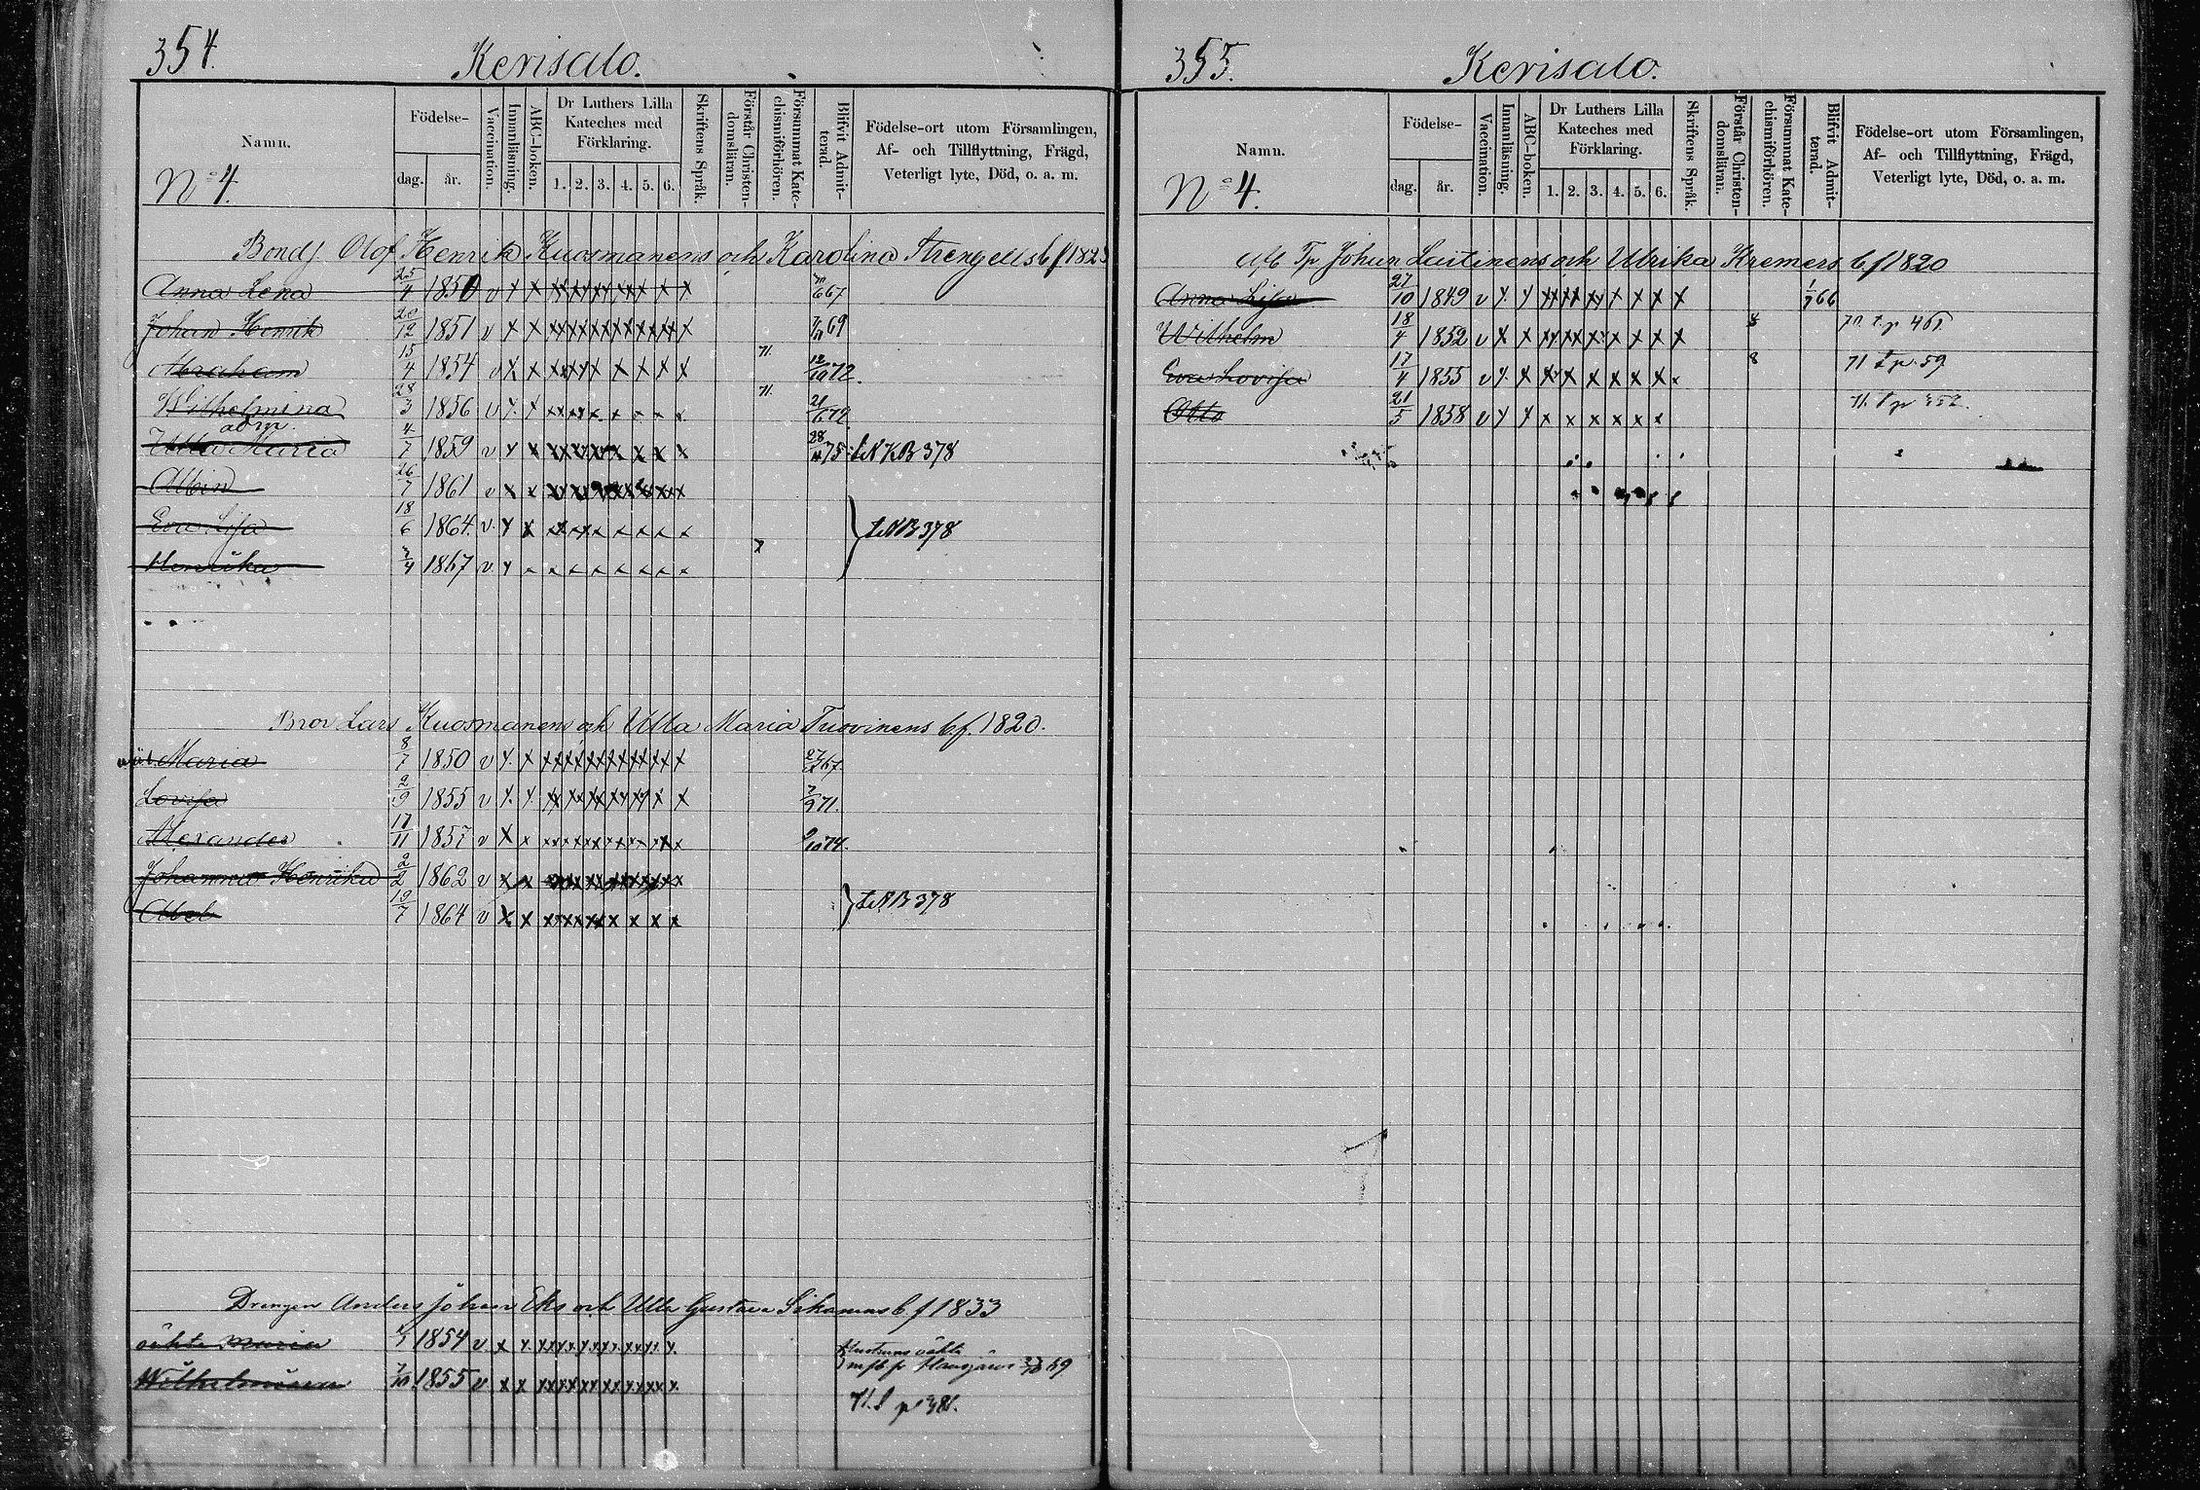 354.
Kerisalo.
Namn.
Födelse-
dag.
år.
Vaccination.
Innanläsning.
ABC-boken.
Dr Luthers Lilla
Kateches med
Förklaring.
1. 2. 3. 4. 5. 6.
Skriftens Språk.
Förstår Christen-
domsläran.
Försummat Kate-
chismiförhören.
Blifvit Admit-
terad.
Födelse-ort utom Församlingen,
Af- och Tillflyttning, Frägd,
Veterligt lyte, Död, o. a. m.
No 4.
Bond. Olof Henrik Kuosmanens och Karolina Strengells b f 1823
Anna Lena 25/4 1850 v
Johan Henrik 20/12 1851 v 69
Abraham 15/4 1854 v 71. 12/10 72.
Wilhelmina 28/3 1856 v 71. 21/6 72.
Ulla Maria 4/7 1859 v 28 75 KB 378
Albin 26/7 1861 v
Eva Lisa 18/6 1864. v. KB 378
Henrika 1867 v.
Bror Lars Kuosmanens och Ulla Maria Tuovinens b. f. 1820.
Maria 8/7 1850 v 67.
Lovisa 2/9 1855 v 71.
Alexander 17/11 1857 v 74.
Johanna Henrika 2/2 1862 v
Abel 19/7 1864 v KB 378
Drengen Anders Johan Eks och Ulla Gustava Sikanens b f 1833
Maria 1854 v
Wilhelmina 1855 v 69
355.
Kerisalo.
Namn.
Födelse-
dag.
år.
Vaccination.
Innanläsning.
ABC-boken.
Dr Luthers Lilla
Kateches med
Förklaring.
1. 2. 3. 4. 5. 6.
Skriftens Språk.
Förstår Christen-
domsläran.
Försummat Kate-
chismiförhören.
Blifvit Admit-
terad.
Födelse-ort utom Församlingen,
Af- och Tillflyttning, Frägd,
Veterligt lyte, Död, o. a. m.
No 4.
Johan Laitinens och Ulrika Kremers b f 1820
Anna Lisa 27/10 1849 v 66
Wilhelm 18/4 1852 v
Eva Lovisa 17/4 1855 v 71 p. 59
Otto 21/5 1858 v